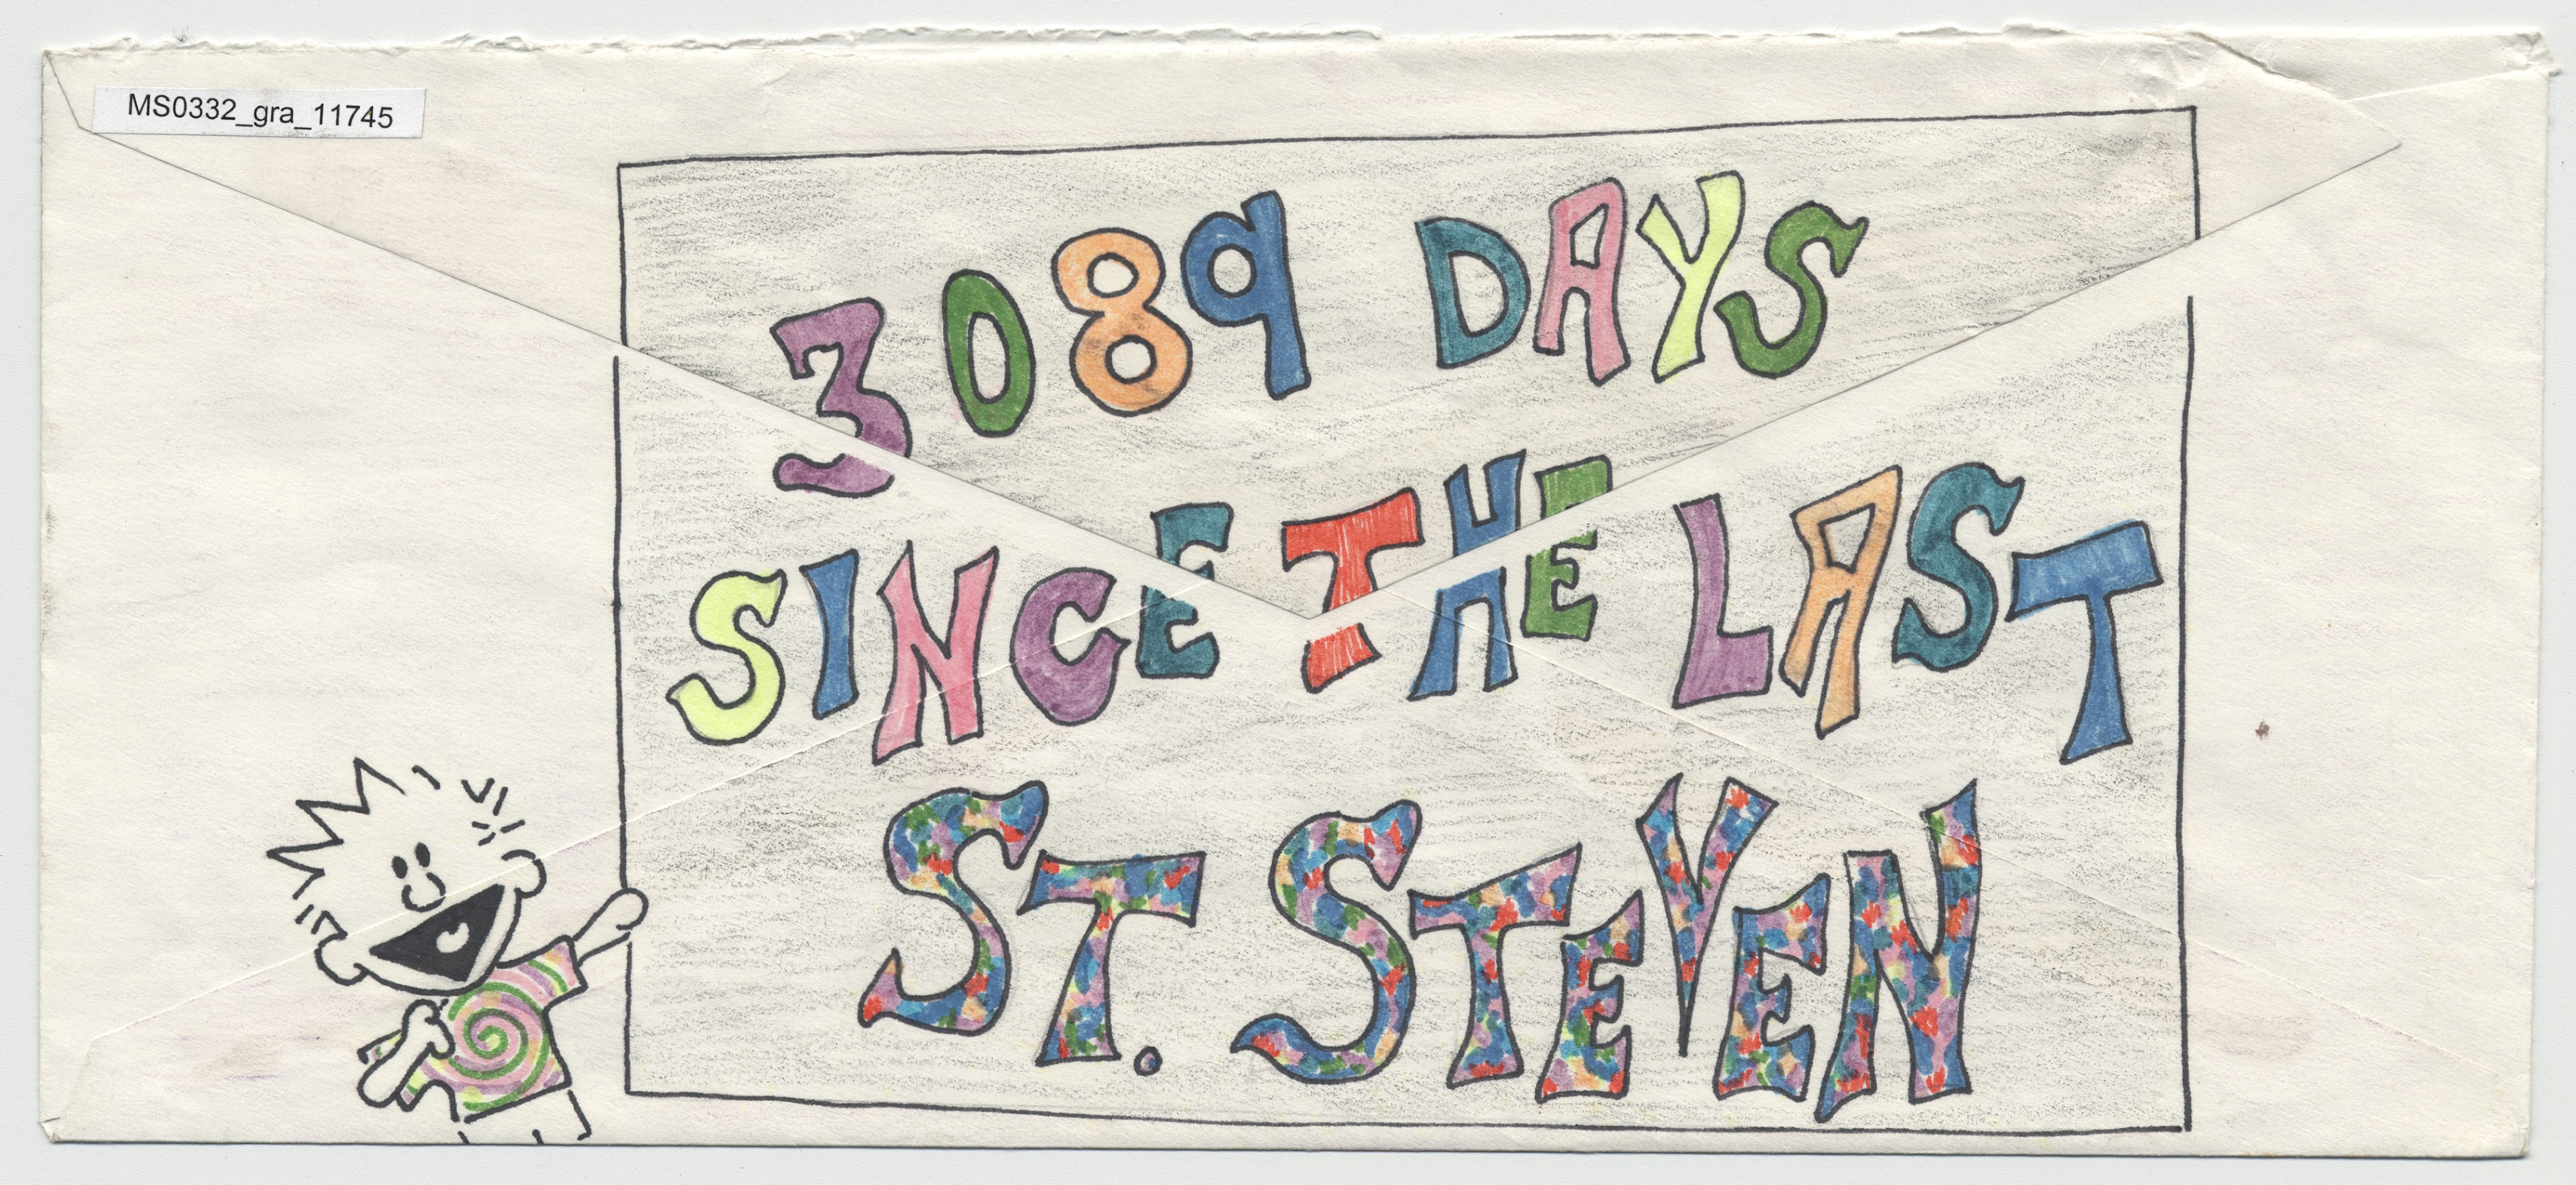 MS0332_gra_11745
3089 DAYS
SINCE THE LAST
ST. STEVEN